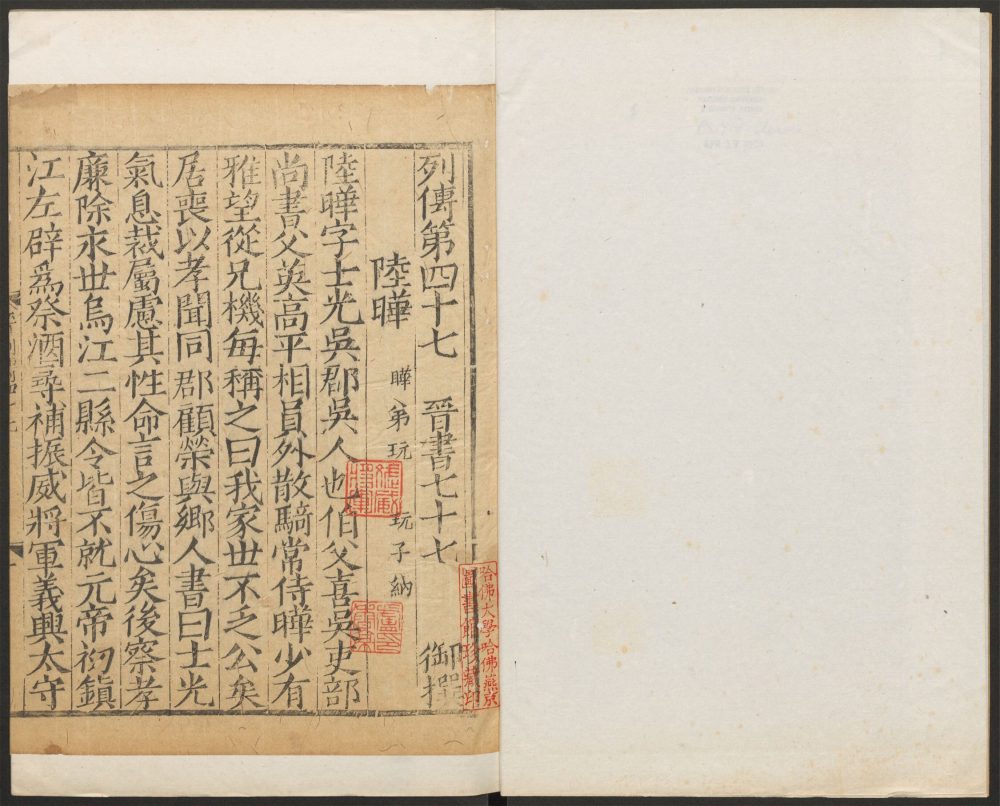 列傳第四十七 晉書七十七 御撰
陸曄 曄弟玩 玩子納
陸曄字士光吳郡吳人也伯父喜吳吏部
尚書父英高平相員外散騎常侍曄少有
雅望從兄機每稱之曰我家世不乏公矣
居喪以孝聞同郡顧榮與鄉人書曰士光
氣息裁屬慮其性命言之傷心矣後察孝
廉除永世烏江二縣令皆不就元帝初鎮
江左辟爲祭酒尋補振威將軍義興太守
哈佛大學哈佛燕京
圖書館珍藏印